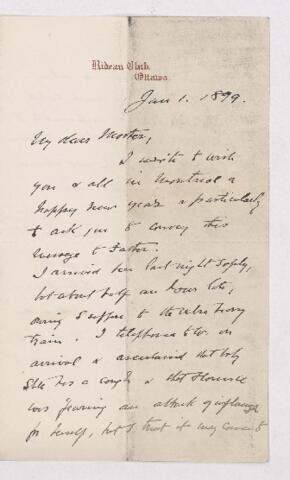 Rideau Club,
Ottawa.
Jan 1. 1899.
My dear
I write to wish
you & all in Montreal a
happy new year & particularly
to ask you to convey this
message to Father.
I arrived here last night safely,
but about half an hour late,
owing I suppose to the
train. I telephoned on
arrival & ascertained that
has a cough & that Florence
was fearing an attack of influenza
for herself, but I trust it may